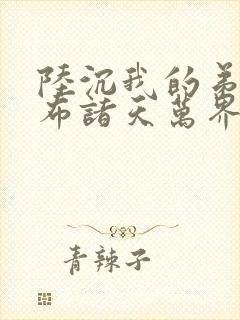 陸沉我的弟
布諸天萬界
青辣子